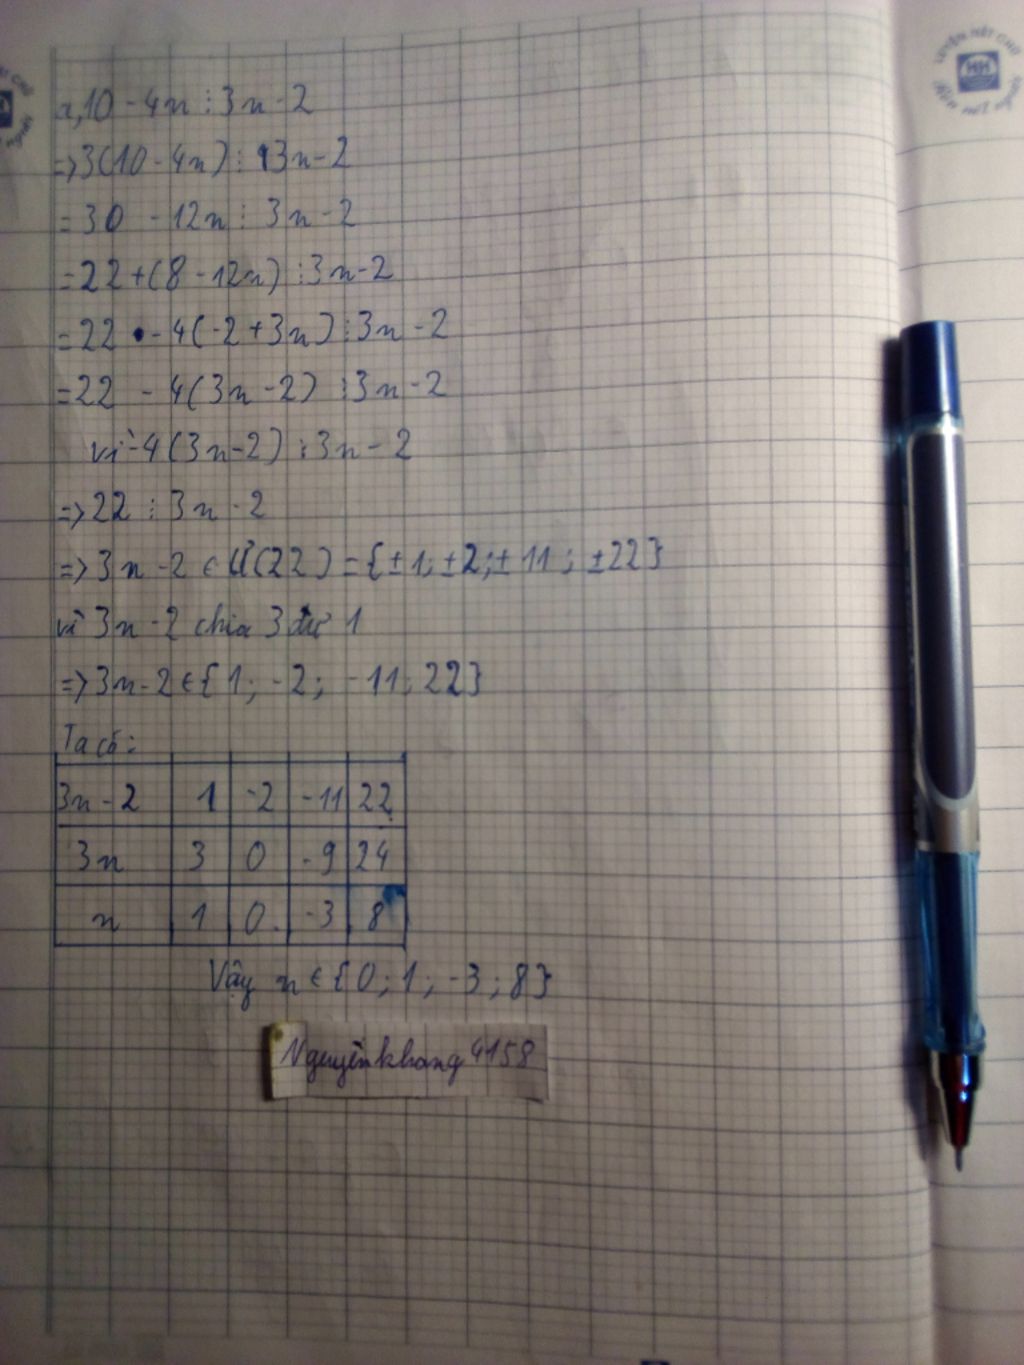 a, 10 - 4n ⋮ 3n - 2
=> 3(10 - 4n) ⋮ 3n - 2
= 30 - 12n ⋮ 3n - 2
= 22 + (8 - 12n) ⋮ 3n - 2
= 22 - 4(-2 + 3n) ⋮ 3n - 2
= 22 - 4(3n - 2) ⋮ 3n - 2
vì -4(3n - 2) ⋮ 3n - 2
=> 22 ⋮ 3n - 2
=> 3n - 2 ∈ Ư(22) = {±1; ±2; ±11; ±22}
vì 3n - 2 chia 3 dư 1
=> 3n - 2 ∈ {1; -2; -11; 22}
Ta có:
3n - 2 1 -2 -11 22
3n 3 0 -9 24
n 1 0 -3 8
Vậy n ∈ {0; 1; -3; 8}
Nguyễnkhang4158
HH